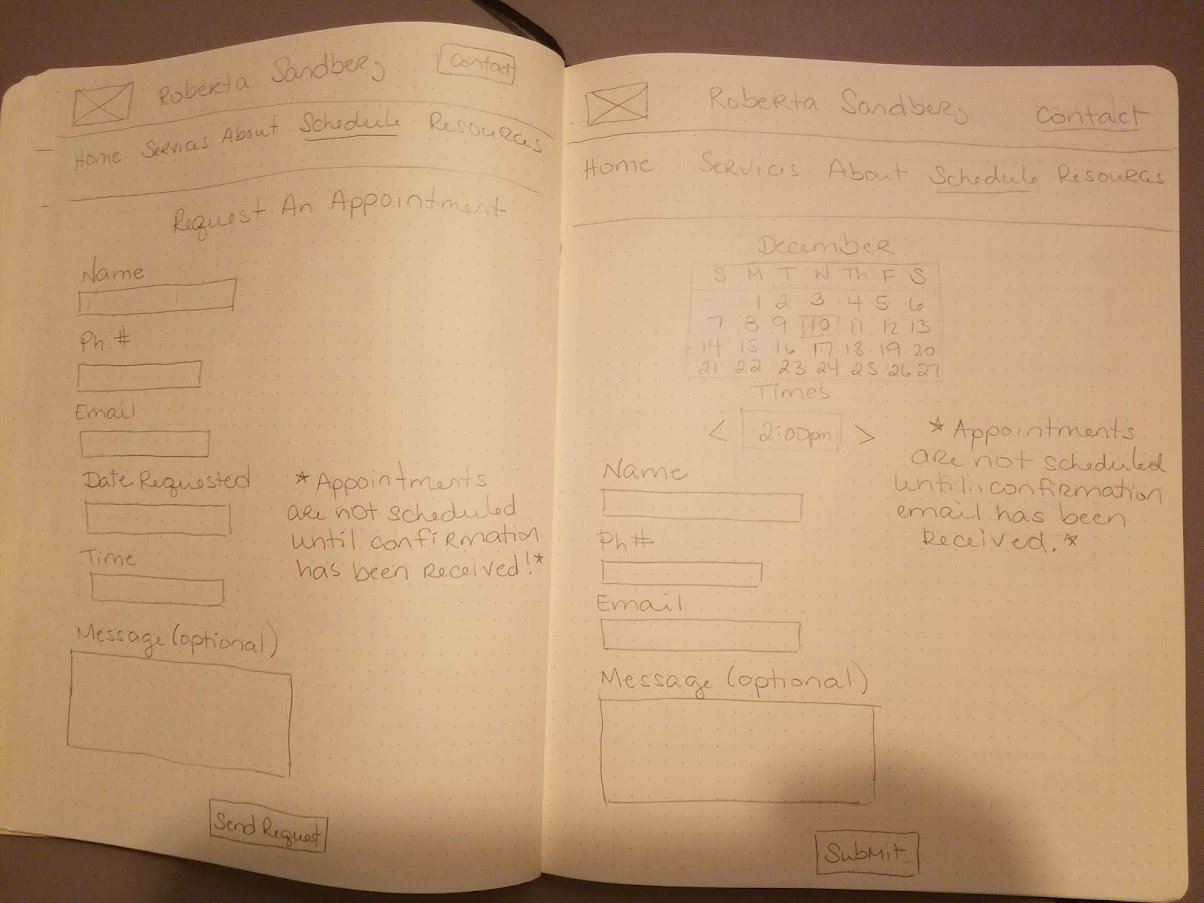 Roberta Sandberg
Contact
Home Services About Schedule Resources
Request An Appointment
Name
Ph #
Email
Date Requested
Time
*Appointments
are not scheduled
until confirmation
has been received!*
Message (optional)
Send Request
Roberta Sandberg
Contact
Home Services About Schedule Resources
December
S M T W Th F S
1 2 3 4 5 6
7 8 9 10 11 12 13
14 15 16 17 18 19 20
21 22 23 24 25 26 27
Times
< 2:00pm >
*Appointments
are not scheduled
until confirmation
email has been
received.*
Name
Ph #
Email
Message (optional)
Submit